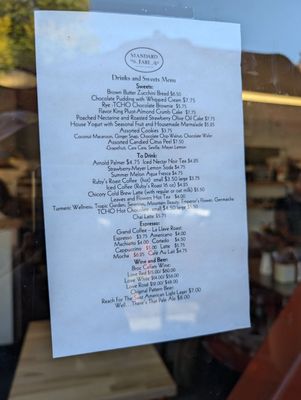 STANDARD
FARE
Drinks and Sweets Menu
Sweets:
Brown Butter Zucchini Bread $6.50
Chocolate Pudding with Whipped Cream $7.75
Rye -TCHO Chocolate Brownie $5.75
Flavor King Pluot-Almond Crumb Cake $7.75
Poached Nectarine and Roasted Strawberry Olive Oil Cake $7.75
House Yogurt with Seasonal Fruit and Housemade Marmalade $5.85
Assorted Cookies $3.75
Coconut Macaroon, Ginger Snap, Chocolate Chip-Walnut, Chocolate Wafer
Assorted Candied Citrus Peel $7.50
Grapefruit, Cara Cara, Seville, Meyer Lemon
To Drink:
Arnold Palmer $4.75 Iced Nectar Noir Tea $4.85
Strawberry-Meyer Lemon Soda $4.75
Summer Melon Agua Fresca $4.75
Ruby's Roast Coffee (hot) small $3.50 large $3.75
Iced Coffee (Ruby's Roast 16 oz) $4.85
Chicory Cold Brew Latte (with regular or oat milk) $5.50
Leaves and Flowers Hot Tea $4.00
Turmeric Wellness, Tropic Garden, Serenity, Mountain Beauty, Emperor's Flower, Genmaicha
TCHO Hot Chocolate small $4.50 large $5.50
Chai Latte $5.75
Espresso:
Grand Coffee – La Llave Roast
Espresso $3.75 Americano $4.00
Machiatto $4.00 Cortado $4.50
Cappuccino Latte $5.75
Mocha $6.25 Café Au Lait $4.75
Wine and Beer:
Broc Cellars Wine:
Love Red $15.00/ $60.00
Love White $14.00/ $56.00
Love Rosé $12.00/ $48.00
Original Pattern Beer:
Reach For The Sun American Light Lager $7.00
Well... There's That Pale Ale $8.00